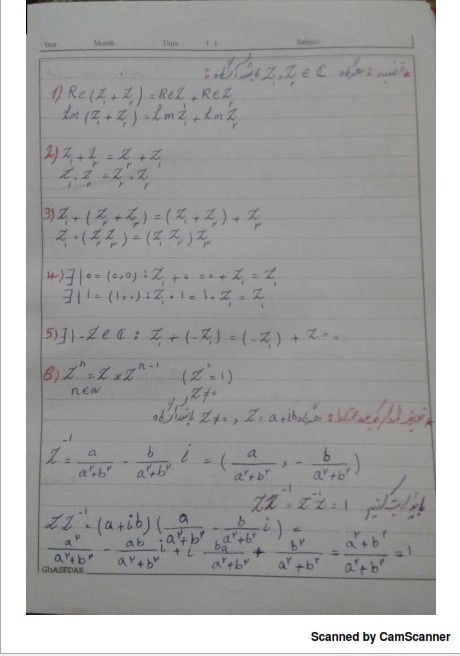 Year. Month. Date. ( ) Subject.
* قضیه: هرگاه Z₁, Z₂ ∈ ℂ باشد آنگاه:
1) Re(Z₁ + Z₂) = ReZ₁ + ReZ₂
Im(Z₁ + Z₂) = ImZ₁ + ImZ₂
2) Z₁ + Z₂ = Z₂ + Z₁
Z₁ . Z₂ = Z₂ . Z₁
3) Z₁ + (Z₂ + Z₃) = (Z₁ + Z₂) + Z₃
Z₁ . (Z₂ Z₃) = (Z₁ Z₂) Z₃
۴) ∃! ۰ = (۰,۰) : Z₁ + ۰ = ۰ + Z₁ = Z₁
∃! 1 = (1,۰) : Z₁ . 1 = 1 . Z₁ = Z₁
5) ∃! -Z ∈ ℂ : Z₁ + (-Z₁) = (-Z₁) + Z = ۰
6) Zⁿ = Z × Zⁿ⁻¹ (Z° = 1)
n∈ℕ Z≠۰
هرگاه Z = a+ib , Z≠۰ باشد آنگاه
Z⁻¹ = a/(a²+b²) - b/(a²+b²) i = (a/(a²+b²) , - b/(a²+b²))
ZZ⁻¹ = Z⁻¹Z = 1 باید ثابت کنیم
ZZ⁻¹ = (a+ib)(a/(a²+b²) - b/(a²+b²) i) =
a²/(a²+b²) - ab/(a²+b²) i + i ba/(a²+b²) + b²/(a²+b²) = (a²+b²)/(a²+b²) = 1
GHASEDAK
Scanned by CamScanner